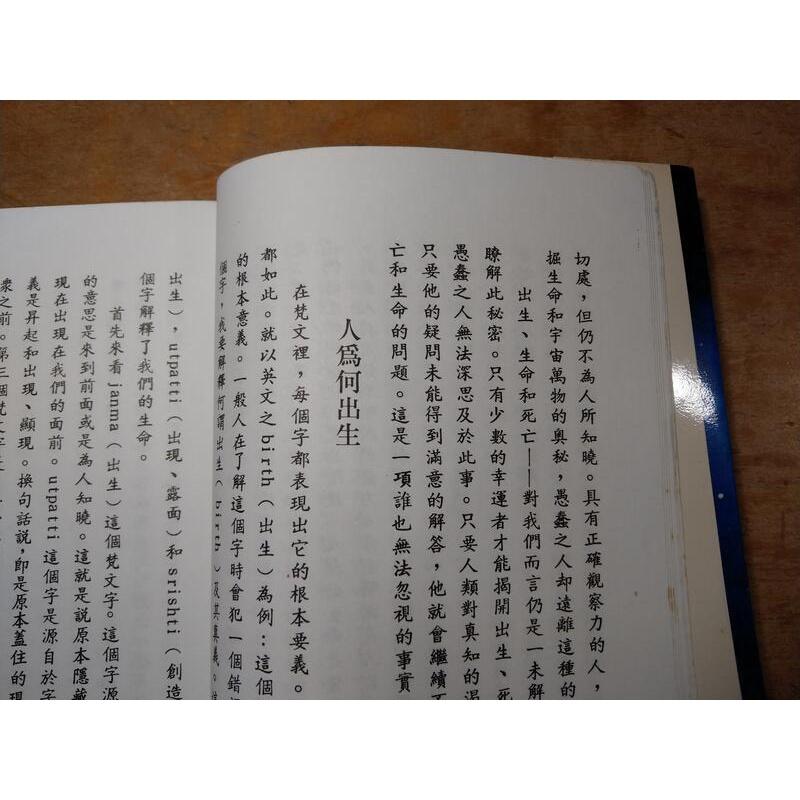 切處，但仍不為人所知曉。具有正確觀察力的人，
掘生命和宇宙萬物的奧秘，愚蠢之人卻遠離這種的
出生、生命和死亡——對我們而言仍是一未解
瞭解此秘密。只有少數的幸運者才能揭開出生、死
愚蠢之人無法深思及於此事。只要人類對真知的渴
只要他的疑問未能得到滿意的解答，他就會繼續
亡和生命的問題。這是一項誰也無法忽視的事實
人為何出生
在梵文裡，每個字都表現出它的根本要義。
都如此。就以英文之birth（出生）為例：這個
的根本意義。一般人在了解這個字時會犯一個錯
個字，我要解釋何謂出生（birth）及其真義。
出生），utpatti（出現、露面）和srishti（創造
個字解釋了我們的生命。
首先來看janma（出生）這個梵文字。這個字源
的意思是來到前面或是為人知曉。這就是說原本隱藏
現在出現在我們的面前。utpatti這個字是源自於字
義是昇起和出現、顯現。換句話說，即是原本蓋住的現
衆之前。第三個梵文字